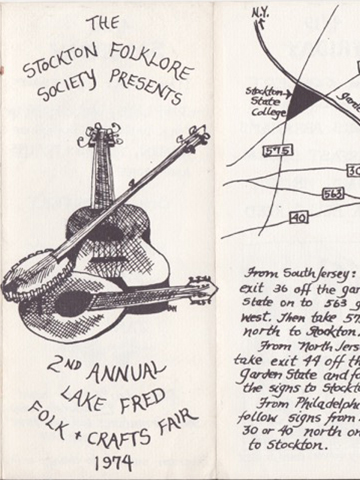 THE
STOCKTON FOLKLORE
SOCIETY PRESENTS
2ND ANNUAL
LAKE FRED
FOLK + CRAFTS FAIR
1974
N.Y.
Stockton
State
College
575
563
40
From South Jersey:
exit 36 off the
State on to 563
west. Then take
north to Stockton.
From North
take exit 44 off
Garden State and
the signs to
From
follow signs from
30 or 40 north
to Stockton.